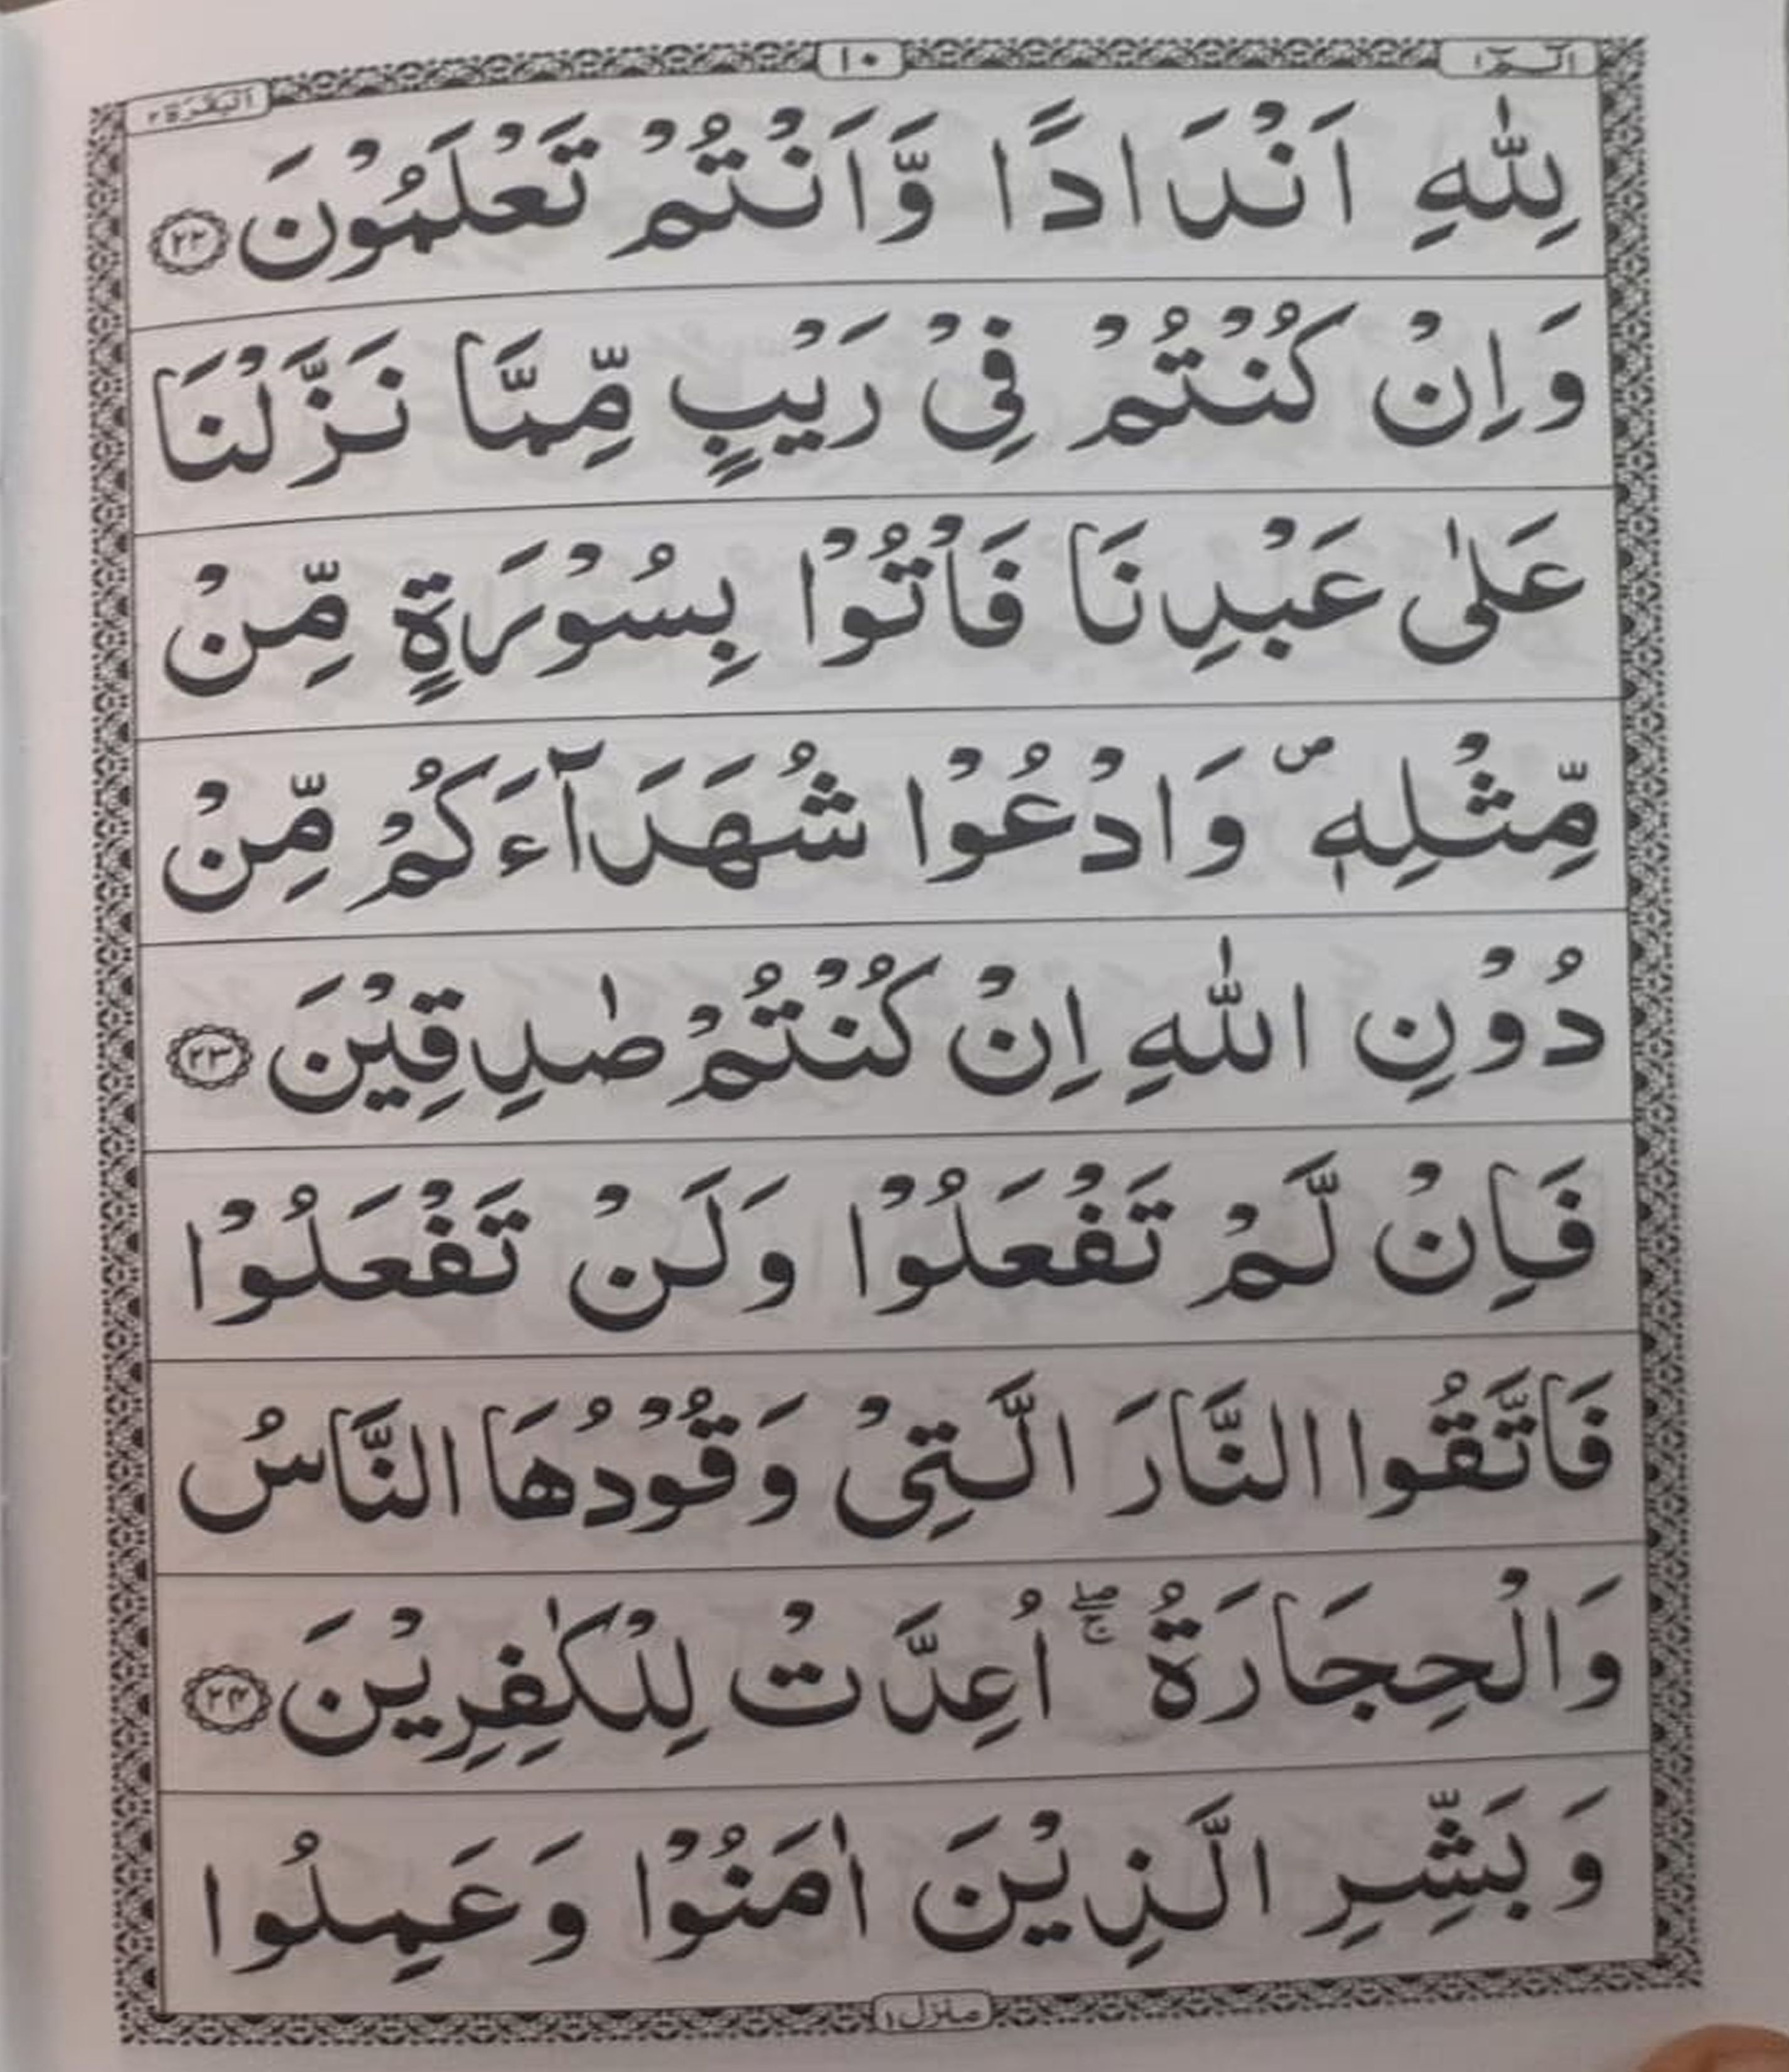 الٓمّٓ ١ ١٠ البقرة ٢
لِلّٰهِ اَنْدَادًا وَّاَنْتُمْ تَعْلَمُوْنَ ﴿۲۲﴾
وَاِنْ كُنْتُمْ فِیْ رَیْبٍ مِّمَّا نَزَّلْنَا
عَلٰی عَبْدِنَا فَاْتُوْا بِسُوْرَةٍ مِّنْ
مِّثْلِهٖ ۪ وَادْعُوْا شُهَدَآءَكُمْ مِّنْ
دُوْنِ اللّٰهِ اِنْ كُنْتُمْ صٰدِقِیْنَ ﴿۲۳﴾
فَاِنْ لَّمْ تَفْعَلُوْا وَلَنْ تَفْعَلُوْا
فَاتَّقُوا النَّارَ الَّتِیْ وَقُوْدُهَا النَّاسُ
وَالْحِجَارَةُ ۖۚ اُعِدَّتْ لِلْكٰفِرِیْنَ ﴿۲۴﴾
وَبَشِّرِ الَّذِیْنَ اٰمَنُوْا وَعَمِلُوا
منزل ١